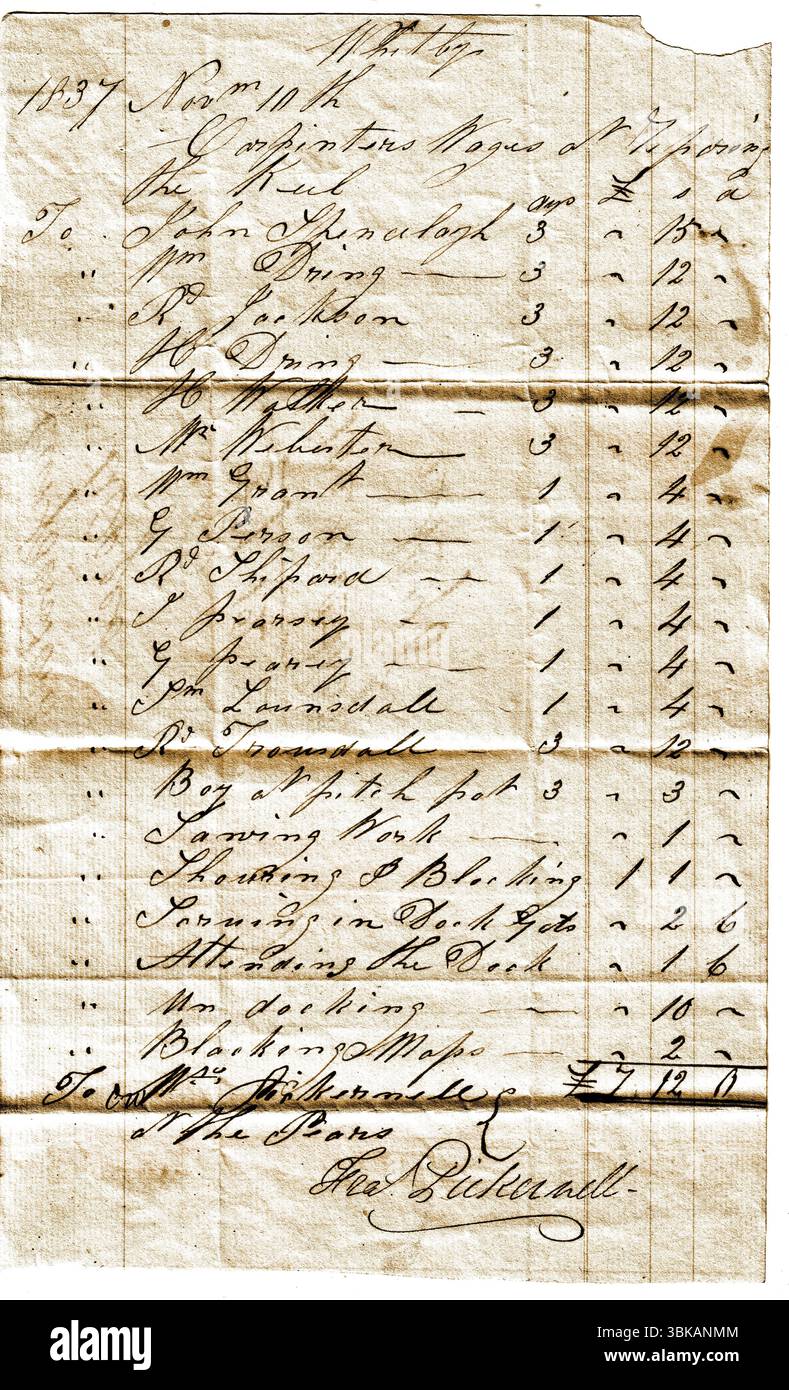 Whitby
1837 Novm 10th
Carpinters Wages at Reparing
the Keel days £ s d
To John Spencelagh 3 " 15 "
" Wm Dring 3 " 12 "
" Rd Jackson 3 " 12 "
" H Dring 3 " 12 "
" H Walker 3 " 12 "
" Mr Webster 3 " 12 "
" Wm Grant 1 " 4 "
" G Person 1 " 4 "
" Rd Shipard 1 " 4 "
" J pearsey 1 " 4 "
" G pearey 1 " 4 "
" Lounsdall 1 " 4 "
" Rd Trousdall 3 " 12 "
" Boy at pitch pot 3 " 3 "
" Sawing Work " 1 "
" Shouring & Blocking 1 1 "
" in Dock Gats " 2 6
" Attending the Dock " 1 6
" Un docking " 10 "
" Blacking & Mops " 2 "
To Pickernell £ 7 12 0
at the Pears
Pickernell
alamy
Image ID: 3BKANMM
www.alamy.com